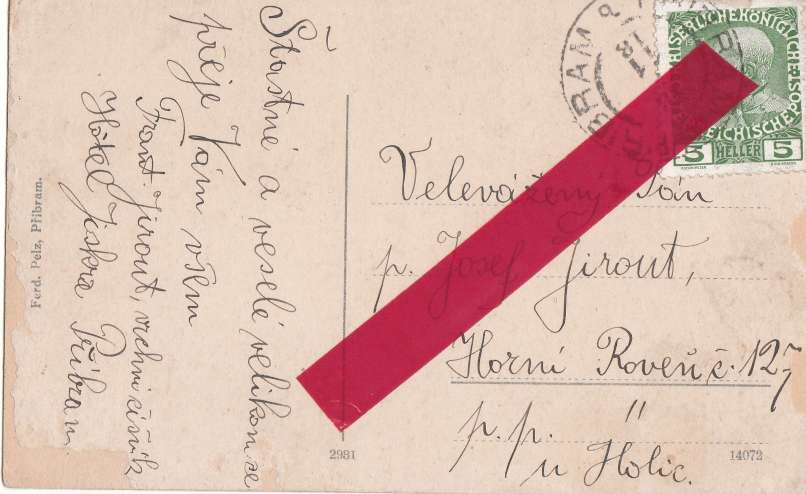 Šťastné a veselé velikonce
přeje Vám všem
Frant. Jirout, vrchní číšník
Hôtel Jiskra Příbram
Ferd. Pelz, Příbram.
KAISERLICHE KÖNIGLICHE
REICHISCHE POST
5 HELLER 5
Velevážený Pán
p. Josef Jirout,
Horní Roveň č. 127
p. p. "
u Holic.
2981
14072